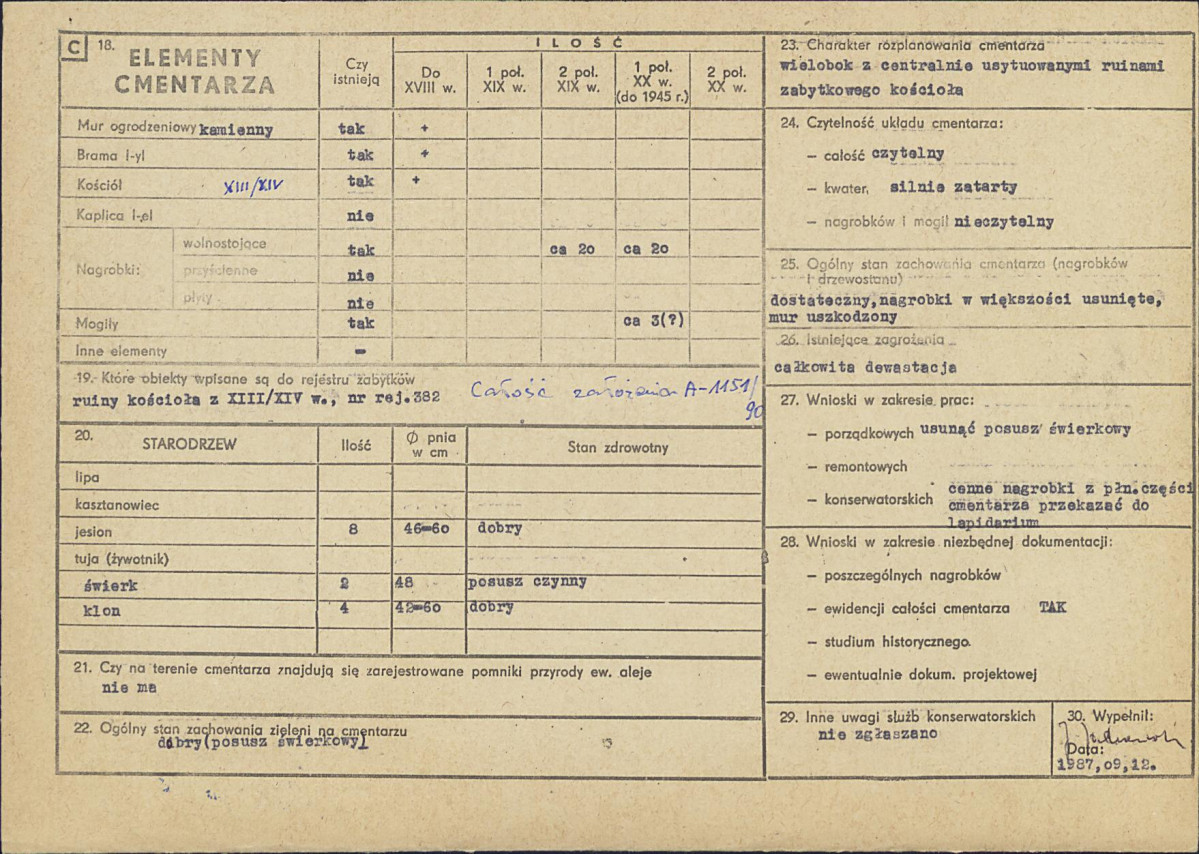 C 18. ELEMENTY CMENTARZA
Czy istnieją
ILOŚĆ
Do XVIII w.
1 poł. XIX w.
2 poł. XIX w.
1 poł. XX w. (do 1945 r.)
2 poł. XX w.
Mur ogrodzeniowy kamienny tak +
Brama I-yl tak +
Kościół XIII/XIV tak +
Kaplica I-el nie
Nagrobki:
wolnostojące tak ca 20 ca 20
przyścienne nie
płyty nie
Mogiły tak ca 3(?)
Inne elementy -
19. Które obiekty wpisane są do rejestru zabytków
ruiny kościoła z XIII/XIV w., nr rej.382 Całość założenia A-1151/
90
20. STARODRZEW Ilość Ø pnia w cm Stan zdrowotny
lipa
kasztanowiec
jesion 8 46-60 dobry
tuja (żywotnik)
świerk 2 48 posusz czynny
klon 4 42-60 dobry
21. Czy na terenie cmentarza znajdują się zarejestrowane pomniki przyrody ew. aleje
nie ma
22. Ogólny stan zachowania zieleni na cmentarzu
dobry(posusz świerkowy)
23. Charakter rozplanowania cmentarza
wielobok z centralnie usytuowanymi ruinami
zabytkowego kościoła
24. Czytelność układu cmentarza:
— całość czytelny
— kwater, silnie zatarty
— nagrobków i mogił nieczytelny
25. Ogólny stan zachowania cmentarza (nagrobków
i drzewostanu)
dostateczny,nagrobki w większości usunięte,
mur uszkodzony
26. Istniejące zagrożenia
całkowita dewastacja
27. Wnioski w zakresie prac:
— porządkowych usunąć posusz świerkowy
— remontowych
— konserwatorskich cenne nagrobki z płn.części
cmentarza przekazać do
lapidarium
28. Wnioski w zakresie niezbędnej dokumentacji:
— poszczególnych nagrobków
— ewidencji całości cmentarza TAK
— studium historycznego.
— ewentualnie dokum. projektowej
29. Inne uwagi służb konserwatorskich
nie zgłaszano
30. Wypełnił:
Data:
1987,09,12.